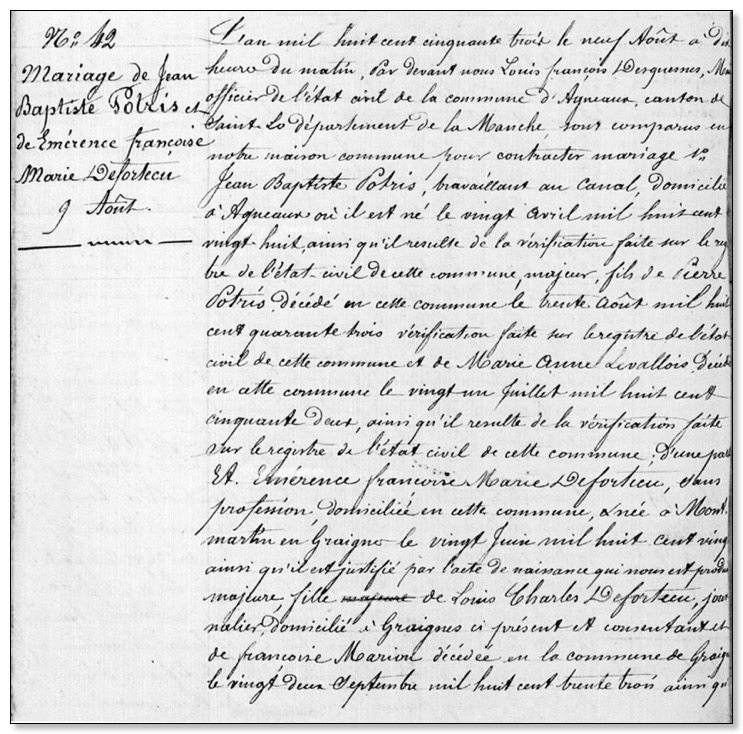 N.o 42
Mariage de Jean
Baptiste Potris et
de Emérence françoise
Marie DeforteCu
9 Août.
L'an mil huit cent cinquante trois le neuf Août a dix
heure du matin, Par devant nous Louis françois Desquesnes, M
officier de l'état civil de la commune d'Agneaux, canton de
Saint-Lo département de la Manche sont comparus en
notre maison commune pour contracter mariage 1o
Jean Baptiste Potris, travaillant au Canal, domicilié
à Agneaux où il est né le vingt avril mil huit cent
vingt huit, ainsi qu'il resulte de la vérification faite sur le reg
tre de l'état-civil de cette commune, majeur, fils de Pierre
Potris décédé en cette commune le trente Août mil huit
cent quarante trois vérification faite sur le registre de l'état
civil de cette commune et de Marie Anne Levallois Décédé
en cette commune le vingt un Juillet mil huit cent
cinquante deux, ainsi qu'il resulte de la vérification faite
sur le registre de l'état civil de cette commune, D'une part
Et Emérence francoise Marie Deforteeu, Sans
profession, domiciliée en cette commune, & née à Mont
martin en Graigne le vingt Juin mil huit cent vingt
ainsi qu'il est justifié par l'acte de naissance qui nous est produ
majeure fille majeure de Louis Charles Deforteeu, jour
nalier, domicilié à Graignes ci présent et consentant et
de francoise Marion décédée en la commune de Graig
le vingt deux Septembre mil huit cent trente trois ainsi qu'